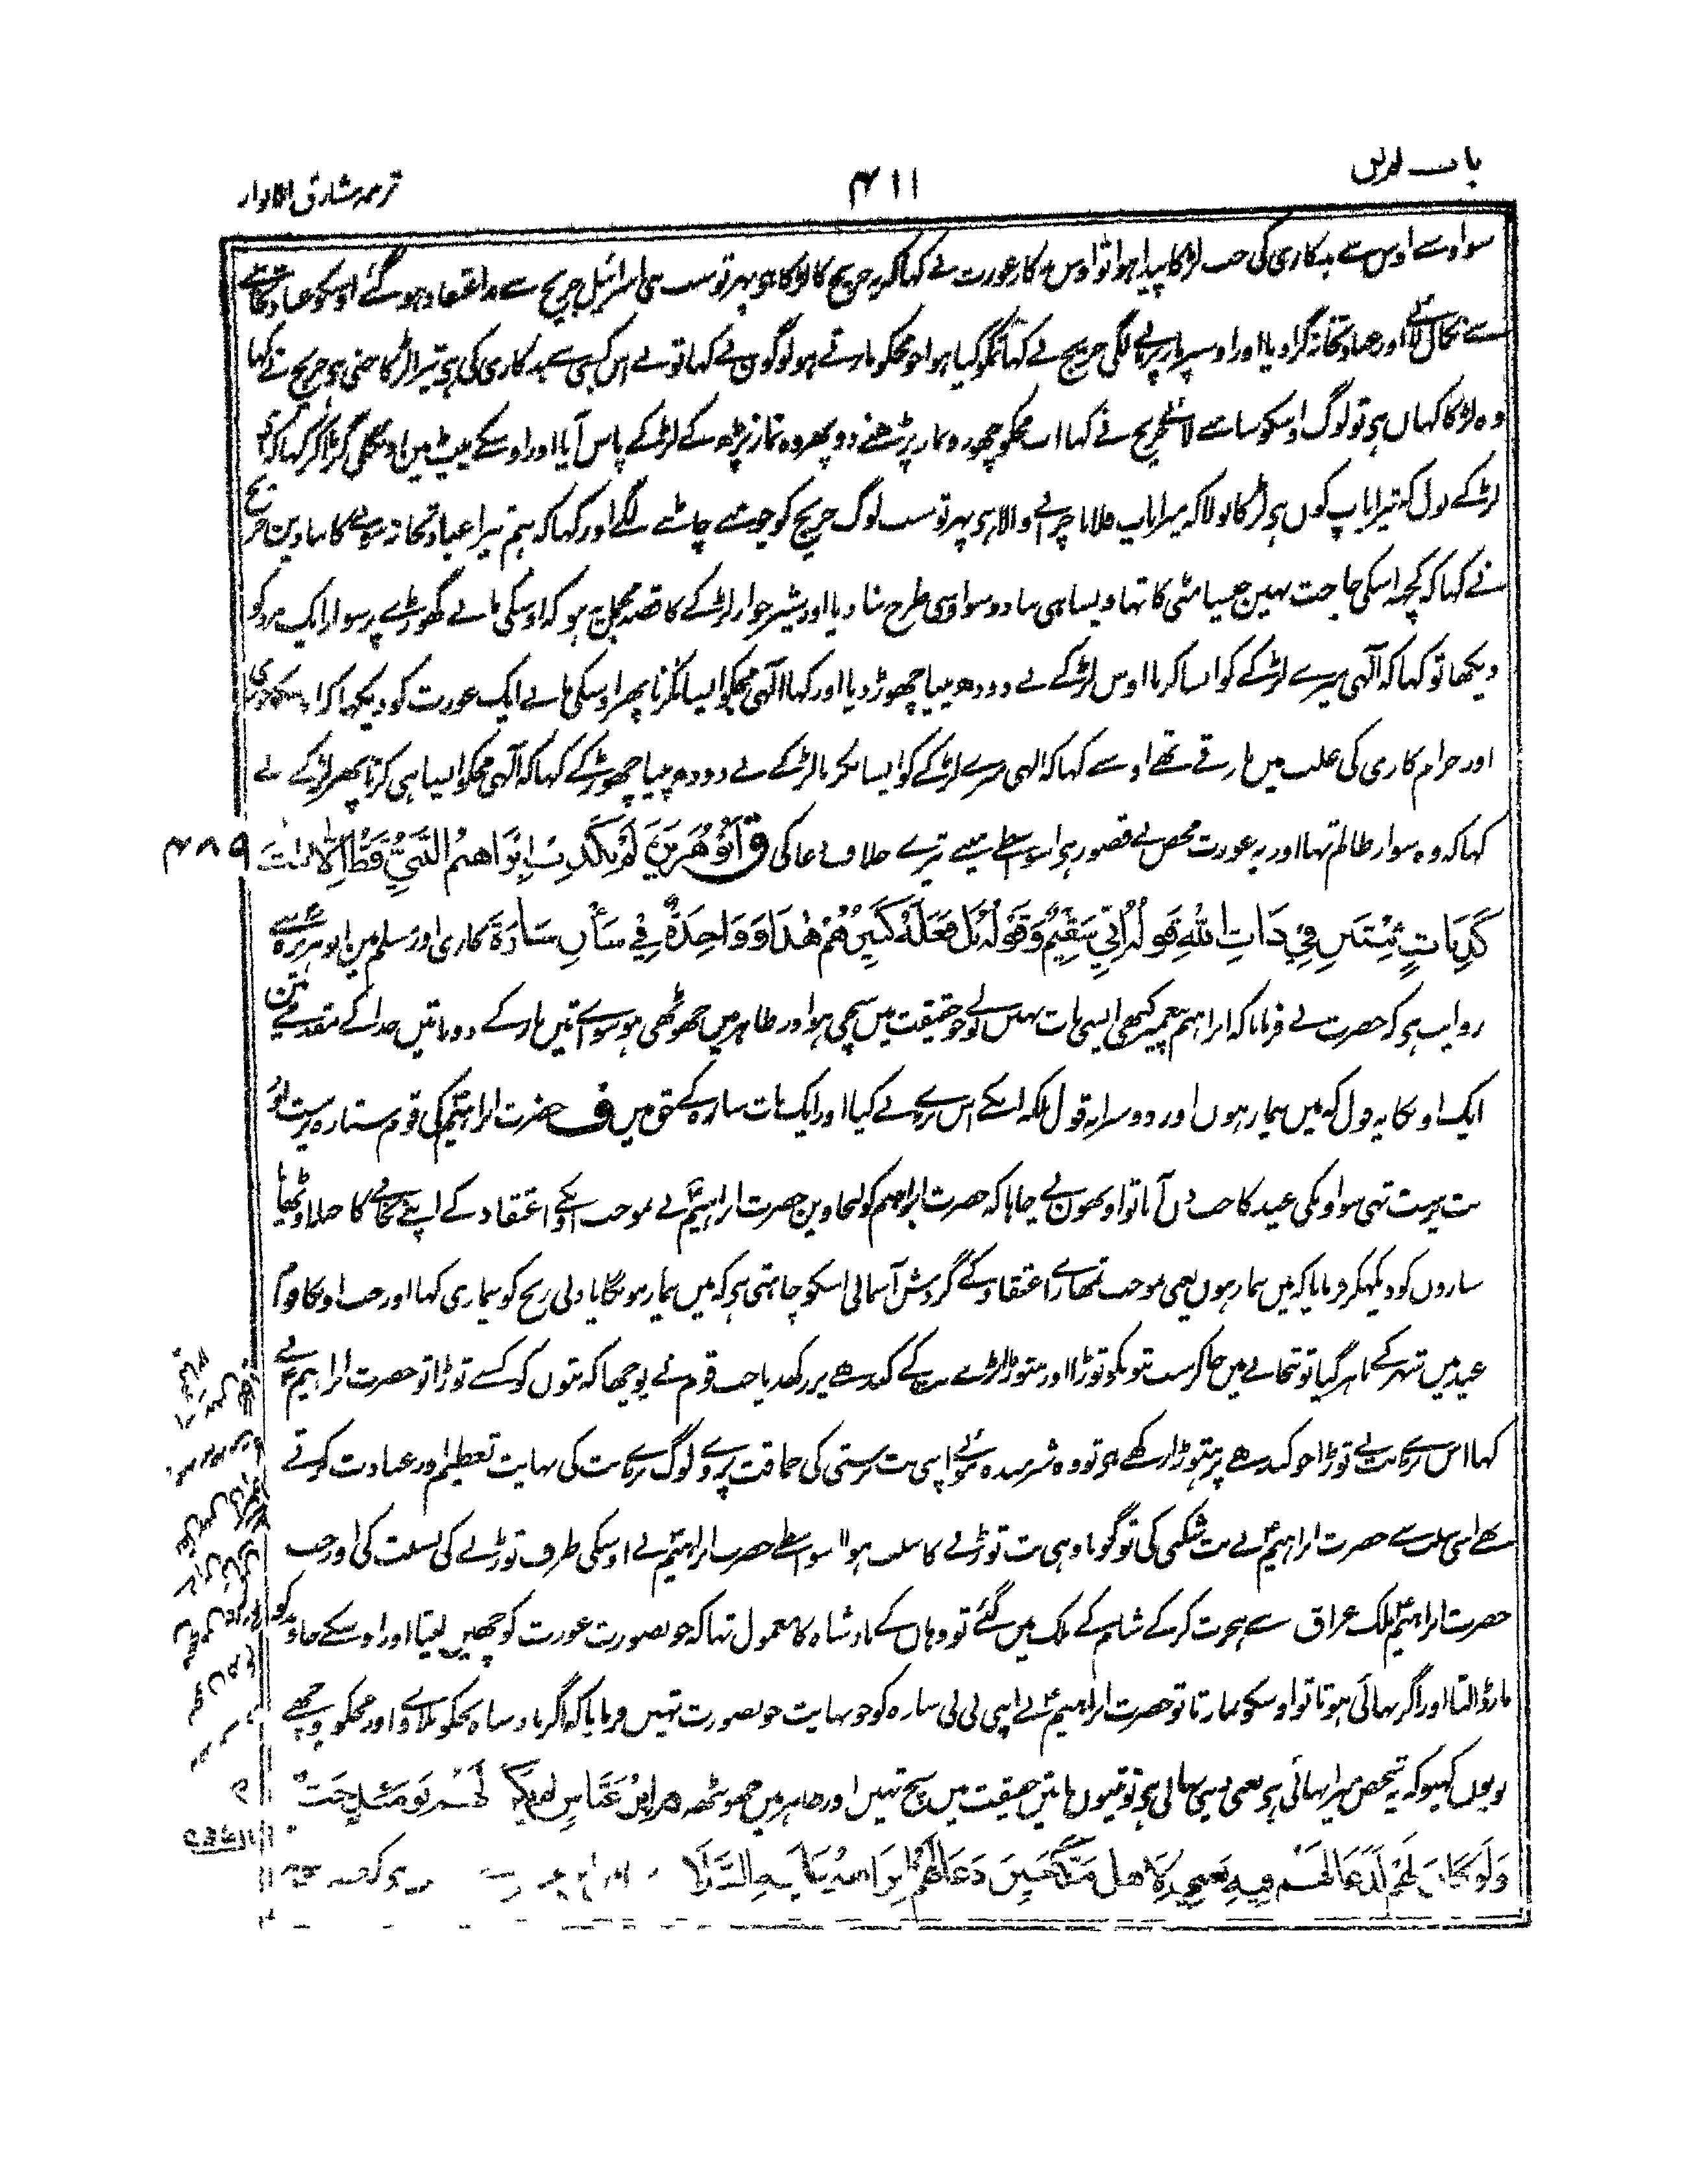 باب لو لیس
۴۱۱
ترجمہ مشارق الانوار
سو اوسے اوس سے بدکاری کی جب لڑکا پیدا ہوا تو اوس بدکار عورت نے کہا کہ یہ جریج کا لڑکا ہو پہر تو سب بنی اسرائیل جریج سے بداعتقاد ہو گئے اوسکو عبادتخانے
سے نکال لائے اور عبادتخانہ گرا دیا اور اوسپر مار پڑنے لگی جریج نے کہا تمکو کیا ہوا جو مجکو مارتے ہو لوگون نے کہا تو نے اس کسبی سے بدکاری کی ہی تیرا لڑکا جنی ہی جریج نے کہا
وہ لڑکا کہاں ہی تو لوگ اوسکو سامنے لائے جریج نے کہا اب مجکو چھوڑو نماز پڑھنے دو پھر وہ نماز پڑھ کے لڑکے پاس آیا اور اوسکے پیٹ میں اونگلی گڑا کر کہا کہ ای
لڑکے بول کہ تیرا باپ کون ہی لڑکا بولا کہ میرا باپ فلانا چرانے والا ہی پہر تو سب لوگ جریج کو چومنے چاٹنے لگے اور کہا کہ ہم تیرا عبادتخانہ سونے کا بنا دین جریج
نے کہا کہ کچھ اسکی حاجت نہین جیسا مٹی کا تہا ویسا ہی بنا دو سو اوسی طرح بنا دیا اور شیر خوار لڑکے کا قصہ مجمل یہ ہو کہ اوسکی مانے گھوڑے پر سوار ایک مرد کو
دیکھا تو کہا کہ الٰہی میرے لڑکے کو ایسا کرنا اوس لڑکے نے دودھ پینا چھوڑ دیا اور کہا الٰہی مجکو ایسا نکرنا پھر اوسکی مانے ایک عورت کو دیکھا کہ اوسکو چوری
اور حرام کاری کی علت میں مارتے تھے اوسنے کہا کہ الٰہی میرے لڑکے کو ایسا نکرنا لڑکے نے دودھ پینا چھوڑ کے کہا کہ الٰہی مجکو ایسا ہی کرنا پھر لڑکے نے
کہا کہ وہ سوار ظالم تہا اور یہ عورت محض بے قصور ہی اسواسطے مینے تیرے خلاف دعا کی ق اَبُوْ هُرَيْرَةَ لَمْ يَكْذِبْ اِبْرَاهِيْمُ النَّبِيُّ قَطُّ اِلَّا ثَلٰثَ
۴۸۹
كَذِبَاتٍ ثِنْتَيْنِ فِيْ ذَاتِ اللّٰهِ قَوْلُهُ اِنِّيْ سَقِيْمٌ وَقَوْلُهُ بَلْ فَعَلَهُ كَبِيْرُهُمْ هٰذَا وَوَاحِدَةٌ فِيْ شَأْنِ سَارَةَ بخاری اور مسلم مین ابو ہریرہ سے
روایت ہی کہ حضرت نے فرمایا کہ ابراہیم پیغمبر کبھی ایسی بات نہیں بولے جو حقیقت میں سچی ہو اور ظاہر میں جھوٹھی ہو سوائے تین بار کے دو باتیں خدا کے مقدمے مین
ایک اونکا یہ قول کہ میں بیمار ہوں اور دوسرا یہ قول بلکہ انکے اس بڑے نے کیا اور ایک بات سارہ کے حق میں ف حضرت ابراہیم کی قوم ستارہ پرست اور
بت پرست تہی سو اونکی عید کا جب دن آیا تو اونھون نے چاہا کہ حضرت ابراہیم کو لیجاوین حضرت ابراہیم نے موجب انکے اعتقاد کے اپنے نجانے کا حیلہ اوٹھایا
ستاروں کو دیکہکر فرمایا کہ میں بیمار ہوں یعنی موجب تمہارے اعتقاد کے گردش آسمانی اسکو چاہتی ہی کہ میں بیمار ہونگا یا دلی رنج کو بیماری کہا اور جب اونکا قوم
عید میں شہر کے باہر گیا تو بتخانے میں جا کر سب بتونکو توڑا اور ہتوڑا بڑے بت کے کندھے پر رکھدیا جب قوم نے پوچھا کہ بتوں کو کسنے توڑا تو حضرت ابراہیم نے
کہا اس بڑے بت نے توڑا جو کندھے پر ہتوڑا رکھے ہی تو وہ شرمندہ ہوئے اپنی بت پرستی کی حماقت پر وے لوگ بڑے بت کی نہایت تعظیم اور عبادت کرتے
تھے اسی سبب سے حضرت ابراہیم نے بت شکنی کی تو گویا وہی بت توڑنے کا سبب ہوا اسواسطے حضرت ابراہیم نے اوسکی طرف توڑنے کی نسبت کی اور جب
حضرت ابراہیم ملک عراق سے ہجرت کر کے شام کے ملک میں گئے تو وہاں کے بادشاہ کا معمول تہا کہ خوبصورت عورت کو چھین لیتا اور اوسکے خاوند کو
مار ڈالتا اور اگر بہائی ہوتا تو اوسکو نمارتا تو حضرت ابراہیم نے اپنی بی بی سارہ کو جو نہایت خوبصورت تہیں فرمایا کہ اگر بادشاہ تجکو بلاوے اور مجکو پوچھے
تو یوں کہیو کہ یہ شخص میرا بہائی ہی یعنی دینی بہائی ہی تو تینوں باتیں حقیقت میں سچ تہیں اور ظاہر میں جھوٹھ ابْنُ عَبَّاسٍ لَمْ يَكُنْ لَهُمْ يَوْمَئِذٍ حَبٌّ
وَلَوْ كَانَ لَهُمْ لَدَعَا لَهُمْ فِيْهِ يَعْنِيْ لِاَهْلِ مَكَّةَ حِيْنَ دَعَا لَهُمْ اِبْرَاهِيْمُ